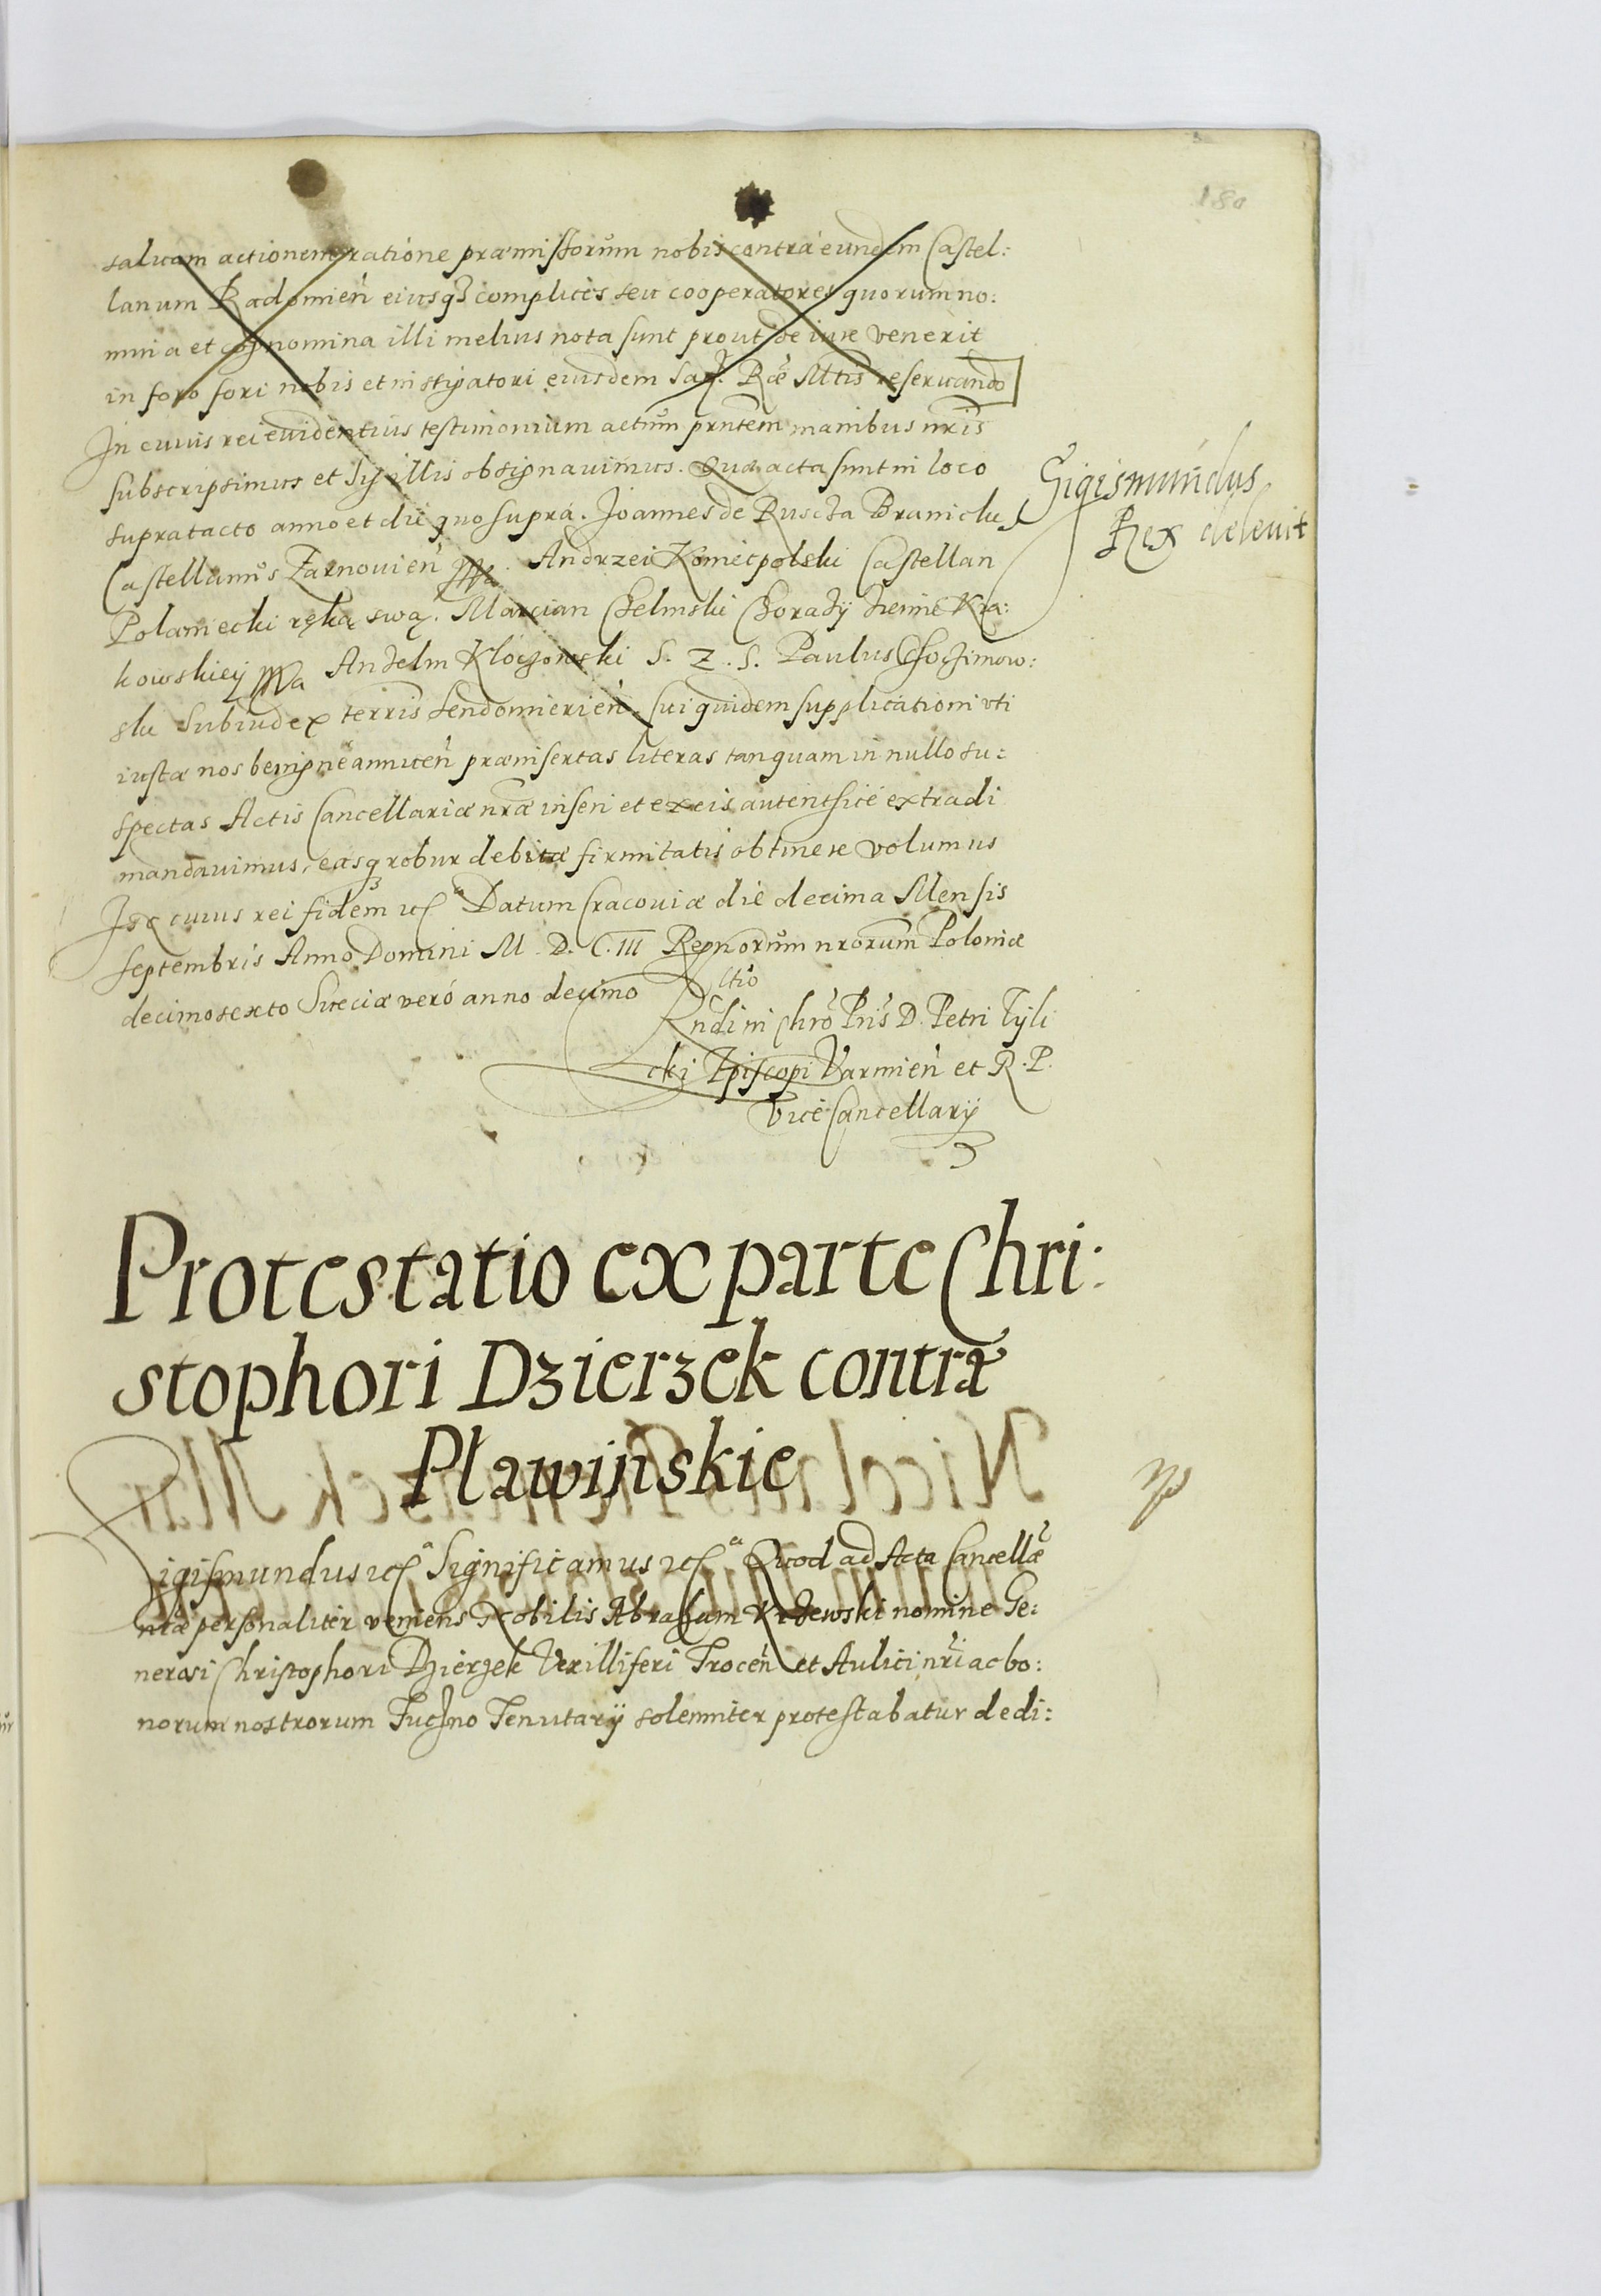 180
saluam actionem ratione præmissorum nobis contra eundem Castel:
lanum Radomien̄ eiusq₃ complices seu cooperatores quorum no:
mina et cognomina illi melius nota sunt prout de iure venerit
in foro fori nobis et instigatori eiusdem Sac. Ræ Mtis reseruando
In cuius rei euidentius testimonium actum prntem manibus nris
subscripsimus et sigillis obsignauimus. Quæ acta sunt in loco
supratacto anno et die quo supra. Joannes de Ruscża Branicki
Castellanus Żarnouien̄ mpa. Andrzei Koniecpolski Castellan
Polaniecki ręką swą. Marcian Chelmski Chorąży żiemie Kra:
kowskiey mpa Anzelm Kloczowski S. Z. S. Paulus Chocimow:
ski Subiudex terris Sendomirien̄. sui quidem supplicationi vti
iustæ nos benigne annuen̄ præinsertas literas tanquam in nullo su:
spectas Actis Cancellariæ nræ inseri et ex eis autenthice extradi
mandauimus, easq₃ robur debitæ firmitatis obtinere volumus
In cuius rei fidem etc̃ Datum Cracouiæ die decima Mensis
Septembris Anno Domini M. D. C. III Regnorum nrorum Poloniæ
decimosexto Sueciæ vero anno decimo
Sigismundus
Rex deleuit
Rlĩo
Rndi in Chro Pris D. Petri Tyli
cki Episcopi Varmien̄ et R. P.
Vice Cancellarij
Protestatio ex parte Chri:
stophori Dzierzek contra
Pławinskie
Sigismundus etc̃ Significamus etc̃ Quod ad Acta Cancellæ
nræ personaliter veniens Nobilis Abraham nomine Ge:
nerosi Christophori Dzierzek Vexilliferi Trocen̄ et Aulici nri ac bo:
norum nostrorum Tuchno Tenutarij solemniter protestabatur de di: